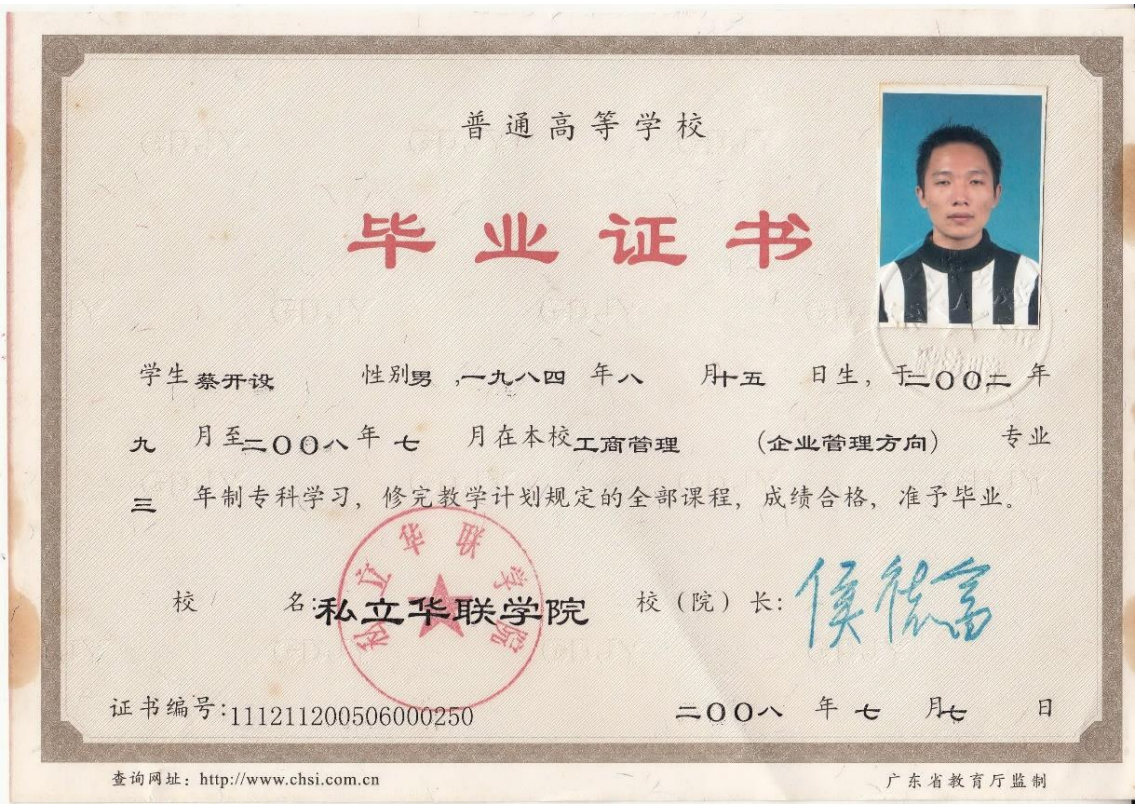 普通高等学校
毕业证书
学生 蔡开设 性别 男 ,一九八四 年 八 月 十五 日生，于 二〇〇二 年
九 月至 二〇〇八 年 七 月在本校 工商管理 （企业管理方向） 专业
三 年制专科学习，修完教学计划规定的全部课程，成绩合格，准予毕业。
私立华联学院
校 名: 私立华联学院 校（院）长: 侯德富
证书编号:111211200506000250 二〇〇八 年 七 月 七 日
查询网址：http://www.chsi.com.cn 广东省教育厅监制